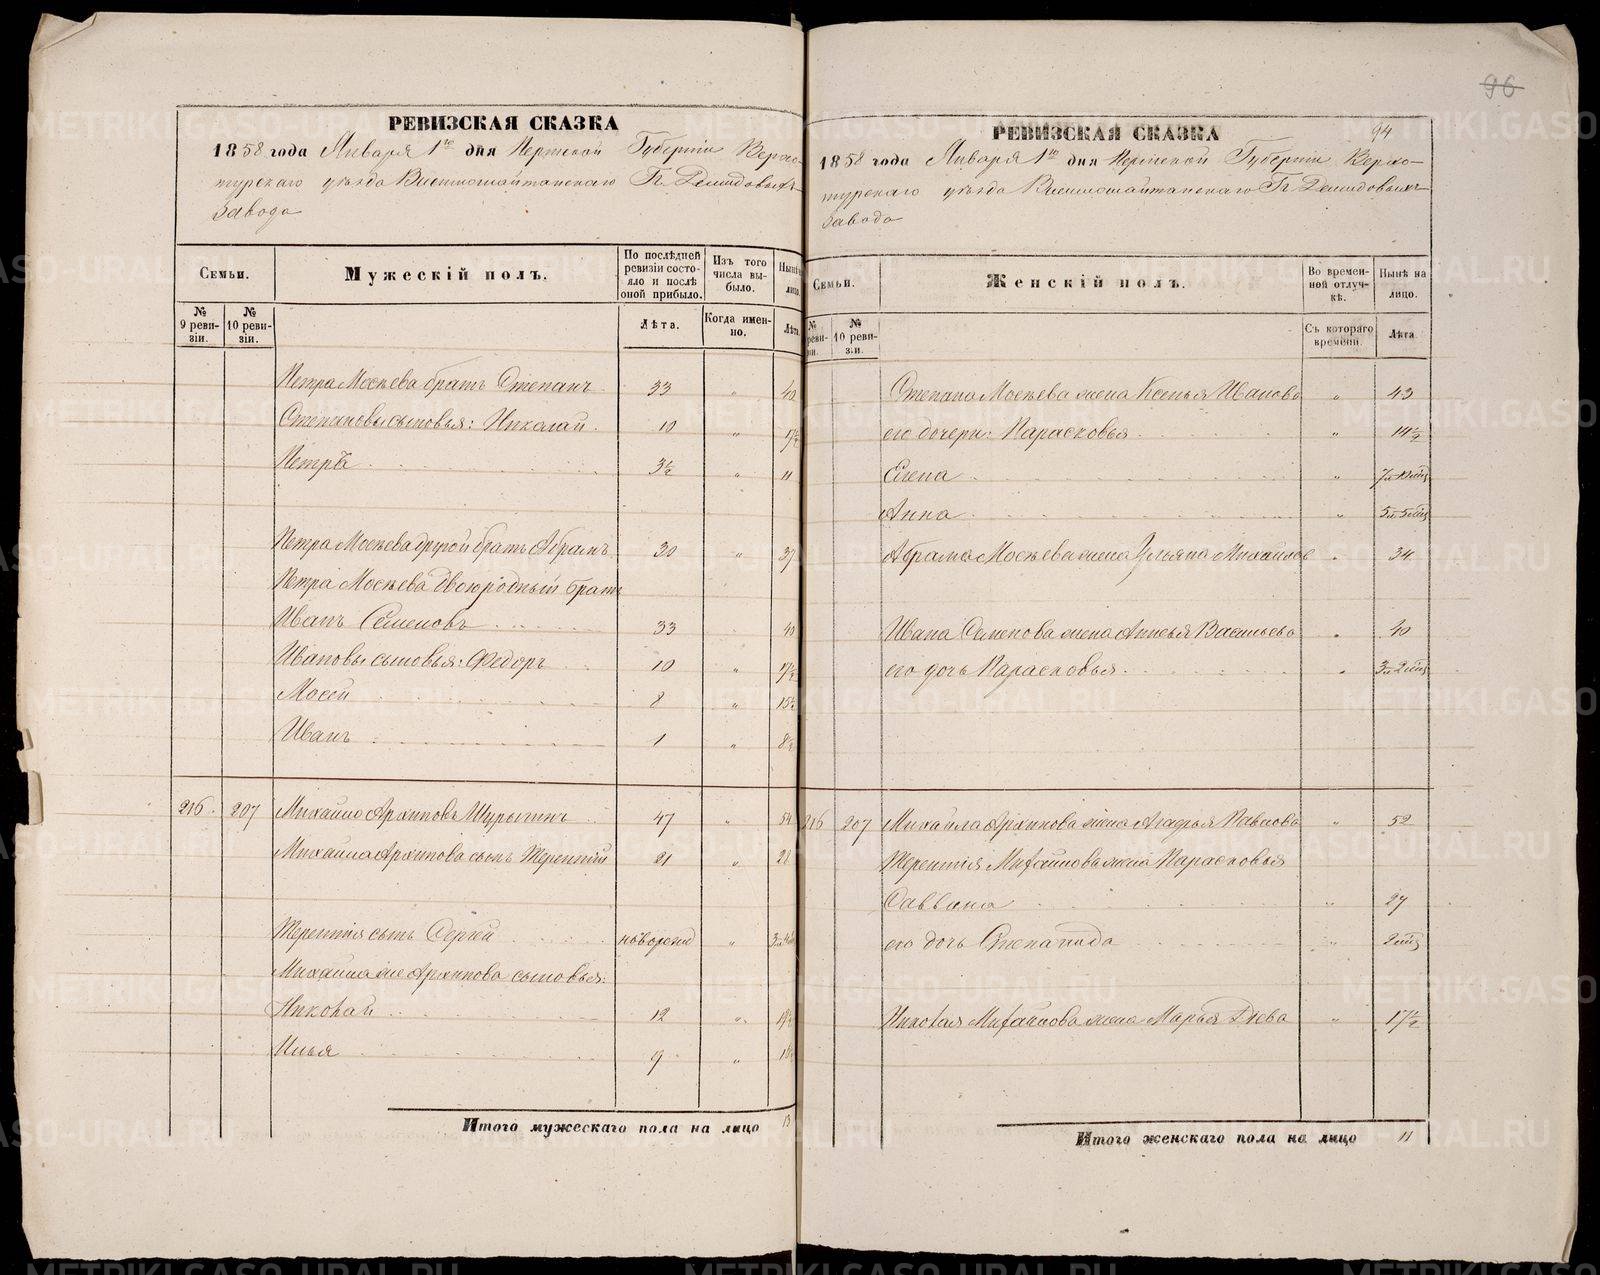 96
РЕВИЗСКАЯ СКАЗКА
1858 года Января 1го дня Пермской Губерніи Верхо-
турскаго уѣзда Висимошайтанскаго Гг. Демидовыхъ
Завода
Семьи.
Мужескій полъ.
По послѣдней ревизіи состояло и послѣ оной прибыло.
Изъ того числа выбыло.
Нынѣ
лицо.
№ 9 ревизіи.
№ 10 ревизіи.
Лѣта.
Когда именно.
Лѣта
Петра Мосѣева братъ Степанъ 33 " 40
Степановы сыновья: Николай 10 " 17½
Петръ 3½ " 11
Петра Мосѣева другой братъ Абрамъ 30 " 37
Петра Мосѣева двоюродный братъ
Иванъ Семеновъ 33 40
Ивановы сыновья: Федоръ 10 " 17½
Мосей 8 " 15½
Иванъ 1 " 8½
216. 207 Михайло Архиповъ Шурыгинъ 47 " 54
Михайла Архипова сынъ Терентій 21 " 28
Терентія сынъ Сергей новорожд "
Михайла же Архипова сыновья:
Николай 12 " 19½
Илья 9 " 16½
Итого мужескаго пола на лицо 13
94
РЕВИЗСКАЯ СКАЗКА
1858 года Января 1го дня Пермской Губерніи Верхо-
турскаго уѣзда Висимошайтанскаго Гг. Демидовыхъ
Завода
Семьи.
Женскій полъ.
Во временной отлучкѣ.
Нынѣ на лицо.
№ реви-
№ 10 ревизіи.
Съ котораго времени.
Лѣта
Степана Мосѣева жена Ксенья Иванова " 43
его дочери: Парасковья " 14½
Елена "
Анна " 5 л 5 мѣц
Абрама Мосѣева жена Ульяна Михайлова " 34
Ивана Семенова жена Анисья Васильева " 40
его дочь Парасковья " 3 л 2 мѣц
216 207 Михайла Архипова жена Агафья Павлова " 52
Терентія Михайловъ жена Парасковья
Саввина " 27
его дочь Степанида " 2 мѣц
Николая Михайлова жена Марья Діева " 17½
Итого женскаго пола на лицо 11